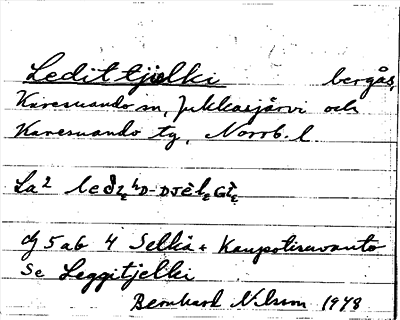 Ledittjielki bergås,
Karesuando sn, Jukkasjärvi och
Karesuando tg, Norrb. l.
La²
dj 5 ab 4 Selkä + Kaupotisuvanto
Se Leggitjelki
Bernhard Nilsson 1978